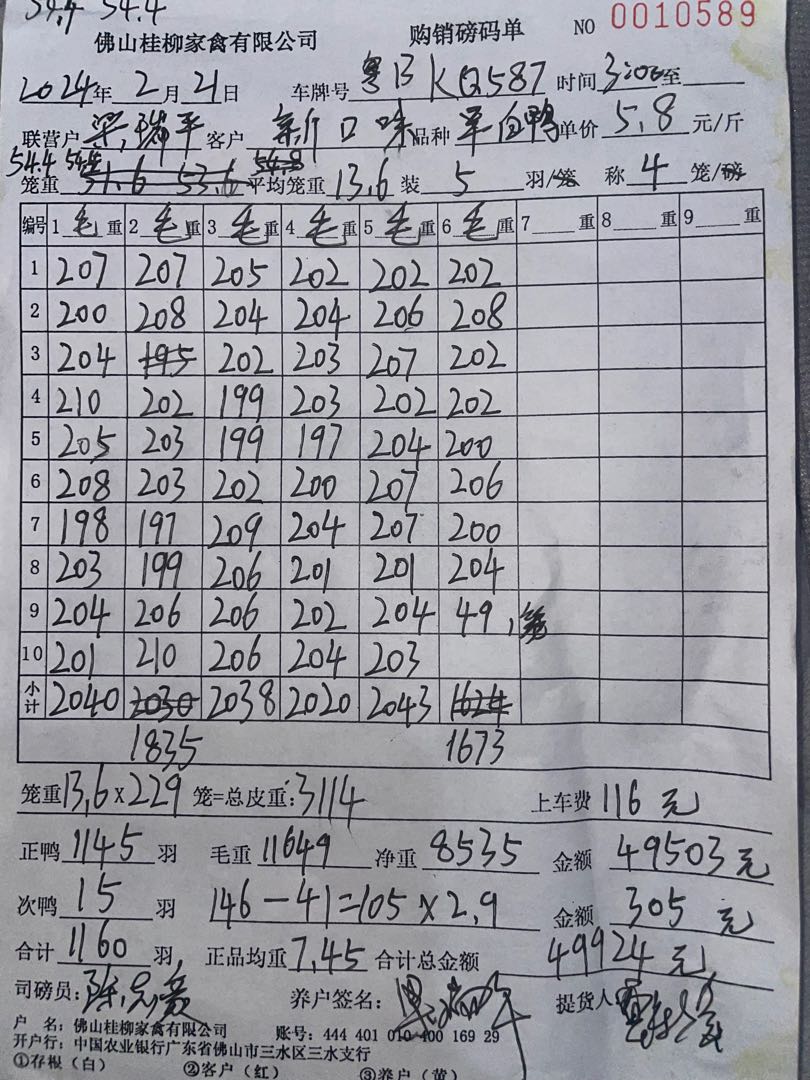 54.4 54.4
佛山桂柳家禽有限公司 购销磅码单 NO 0010589
2024年 2月 21日 车牌号 粤B KQ587 时间 3:00至
联营户 梁瑞平 客户 新口味 品种 单白鸭 单价 5.8 元/斤
54.4 54.4 54.8
笼重 51.6 53.6 平均笼重 13.6 装 5 羽/笼 称 4 笼/磅
编号 1 毛 重 2 毛 重 3 毛 重 4 毛 重 5 毛 重 6 毛 重 7 重 8 重 9 重
1 207 207 205 202 202 202
2 200 208 204 204 206 208
3 204 195 202 203 207 202
4 210 202 199 203 202 202
5 205 203 199 197 204 200
6 208 203 202 200 207 206
7 198 197 209 204 207 200
8 203 199 206 201 201 204
9 204 206 206 202 204 49,1笼
10 201 210 206 204 203
小计 2040 2030 2038 2020 2043 1624
1835 1673
笼重 13.6×229 笼=总皮重:3114 上车费 116 元
正鸭 1145 羽 毛重 11649 净重 8535 金额 49503 元
次鸭 15 羽 146-41=105×2.9 金额 305 元
合计 1160 羽, 正品均重 7.45 合计总金额 49924 元
司磅员: 养户签名: 提货人
户 名: 佛山桂柳家禽有限公司 账号: 444 401 010 400 169 29
开户行: 中国农业银行广东省佛山市三水区三水支行
①存根(白) ②客户(红) ③养户(黄)